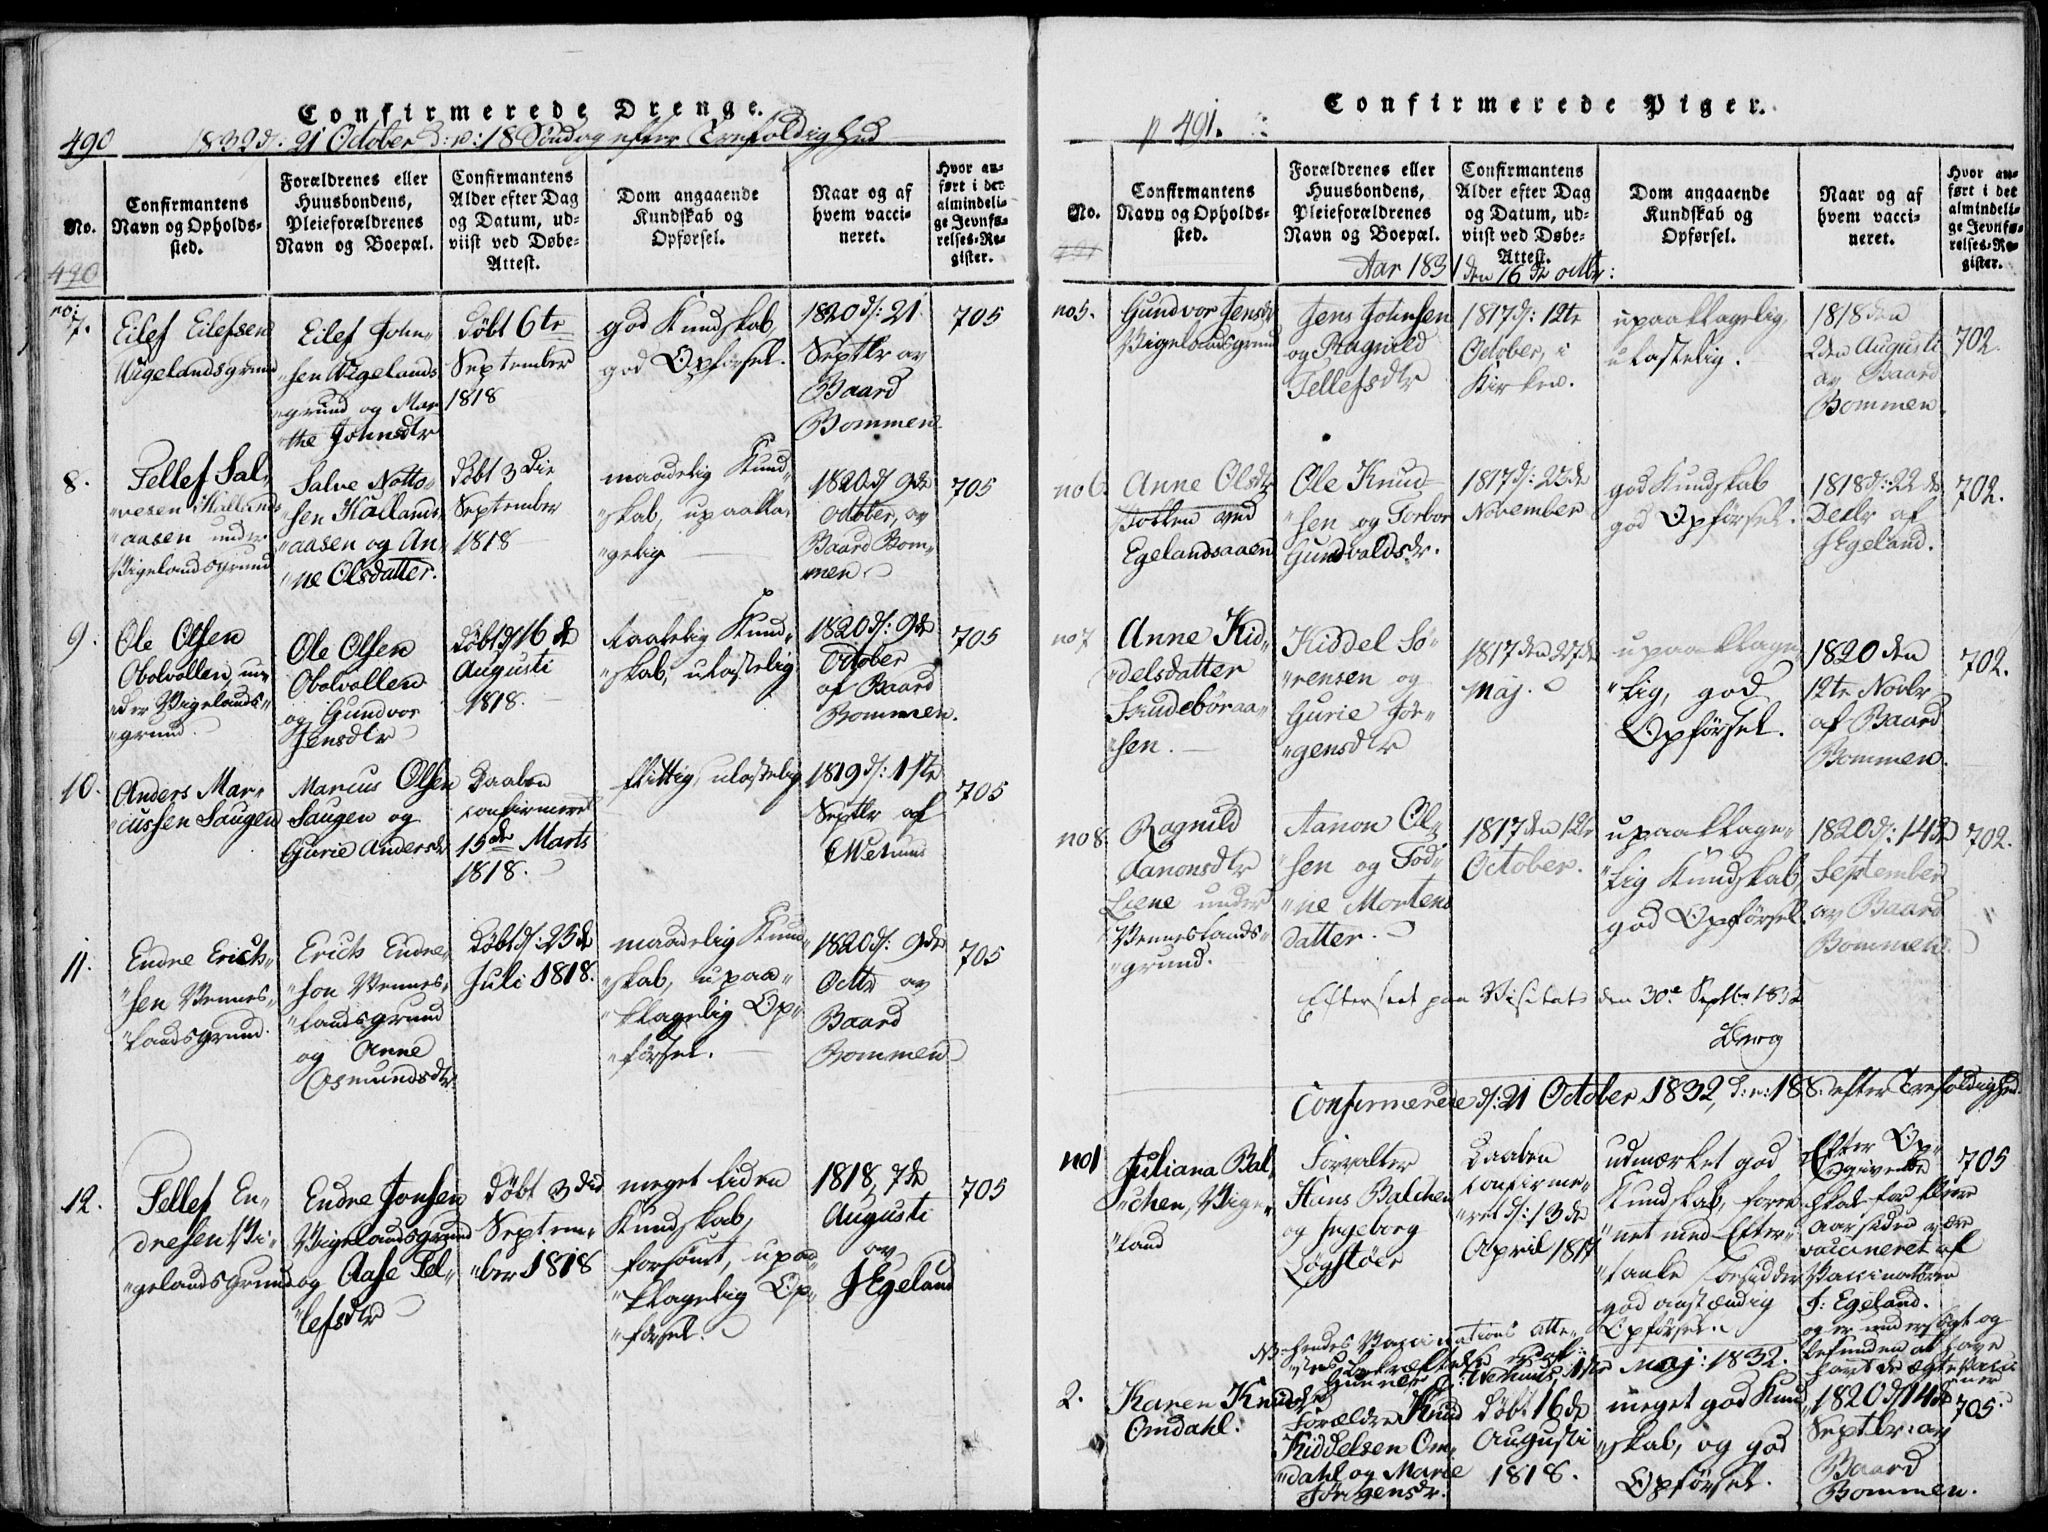 Confirmerede Drenge.
490
1832 d. 21 October d: e: 18 Søndag efter Trefoldighed
No.
Confirmantens
Navn og Opholds-
sted.
Forældrenes eller
Huusbondens,
Pleieforældrenes
Navn og Boepæl.
Confirmantens
Alder efter Dag
og Datum, ud-
viist ved Døbe-
Attest.
Dom angaaende
Kundskab og
Opførsel.
Naar og af
hvem vacci-
neret.
Hvor an-
ført i det
almindeli-
ge Jevnfø-
relses-Re-
gister.
490
no:
7.
Eilef Eilefsen
Wigelandsgrund
Eilef John-
"sen Wigelands
"grund og Mar
"the Johnsdtr
Døbt 6te
September
1818
god Kundskab,
god Opførsel.
1820 d: 21
Septbr av
Baard
Bommen.
705
8.
Tellef Sal-
"vesen Hallands
"aasen under
Vigelandsgrund
Salve Notto-
"sen Hallands
"aasen og An-
"ne Olsdatter.
Døbt 3die
September
1818
maadelig Kund-
"skab, upaakla-
"gelig
1820 d. 9de
October, av
Baard Bom-
"men.
705
9.
Ole Olsen
Obolvollen, un-
"der Vigelands-
"grund.
Ole Olsen
Obolvollen
og Gundvor
Jensdtr
Døbt d. 16de
Augusti
1818.
taalelig Kund-
"skab, ulastelig
1820 d: 9de
October
af Baard
Bommen.
705
10.
Anders Mar-
"cussen Haugen
Marcus Olsen
Haugen og
Gurie Andersdr
Daaben
confirmeret
15de Marts
1818.
flittig, ulastelig
1819 d: 1ste
Septbr af
705
11.
Endre Erich-
"sen Vennes-
"landsgrund.
Erich Endre-
"son Vennes-
"landsgrund
og Anne
Osmundsdtr.
Døbt d: 25de
Juli 1818.
maadelig Kund-
"skab, upaa-
"klagelig Op-
"førsel.
1820 d: 9de
Octbr av
Baard
Bommen
705
12.
Tellef En-
dresen Vi-
"gelandsgrund
Endre Jonsen
Vigelandsgrund
og Aase Tel-
"lefsdtr
Døbt 3die
Septem-
"ber 1818
meget liden
Kundskab,
forsømt, upaa-
"klagelig Op-
"førsel.
1818, 7de
Augusti
av
J Egeland
705
Confirmerede Piger.
p 491.
No.
491
Confirmantens
Navn og Opholds-
sted.
Forældrenes eller
Huusbondens,
Pleieforældrenes
Navn og Boepæl.
Confirmantens
Alder efter Dag
og Datum, ud-
viist ved Døbe-
Attest.
Dom angaaende
Kundskab og
Opførsel.
Naar og af
hvem vacci-
neret.
Hvor an-
ført i det
almindeli-
ge Jevnfø-
relses-Re-
gister.
Aar 1831 den 16de octbr:
no 5.
Gundvor Jensdr
Vigelandsgrund
Jens Johnsen
og Ragnild
Tellefsdtr
1817 d: 12te
October, i
Kirken.
upaaklagelig,
ulastelig.
1818 den
2den Augusti
av Baard
Bommen.
702.
no 6.
Anne Olsdr
ved
Egelandsaaen
Ole Knud-
"sen og Torbor
Gundvaldsdr.
1817 d: 23de
November
god Kundskab
god Opførsel.
1818 d: 22de
Decbr af
J Egeland.
702.
no 7
Anne Kid-
"delsdatter
"sen.
Kiddel Sø-
"rensen og
Gurie Jør-
"gensdtr
1817 den 27de
Maj.
upaaklage-
"lig, god
Opførsel.
1820 den
12te Novbr
af Baard
Bommen.
702.
no 8.
Ragnild
Aanonsdtr
Liene under
Venneslands-
"grund.
Aanon Ol-
"sen og Tod-
"ne Mortens
datter.
1817 den 12te
October.
upaaklage-
"lig Kundskab,
god Opførsel
1820 d: 14de
September
av Baard
Bommen.
702.
Efterseet paa Visitats den 30e Septbr 1832
Berg
Confirmerede d: 21 October 1832, d: e: 18 S. efter Trefoldighed.
no 1
Juliana Bal-
"chen, Vige-
"land
Forvalter
Hans Balchen
og Ingeborg
Løgstøer
Daaben
confirme-
"ret d: 13de
April 1817
udmærket god
Kundskab, fore
"net med Efter-
"tanke
god anstændig
Opførsel.
Efter Op-
"givende
skal for flere
Aar siden være
vaccineret af
Vaccinatøren
J: Egeland.
og er undersøgt og
befunden at have
havt de ægte
705
NB hendes Vaccinations atte-
Maj: 1832.
2.
Karen Knudsdr
Omdahl.
Forældre Knud
Kiddelsen Om-
"dahl og Marie
Jørgensdr.
Døbt 16de
Augusti
1818.
meget god Kund
"skab, og god
Opførsel.
1820 d. 14de
Septbr: av
Baard
Bommen.
705.